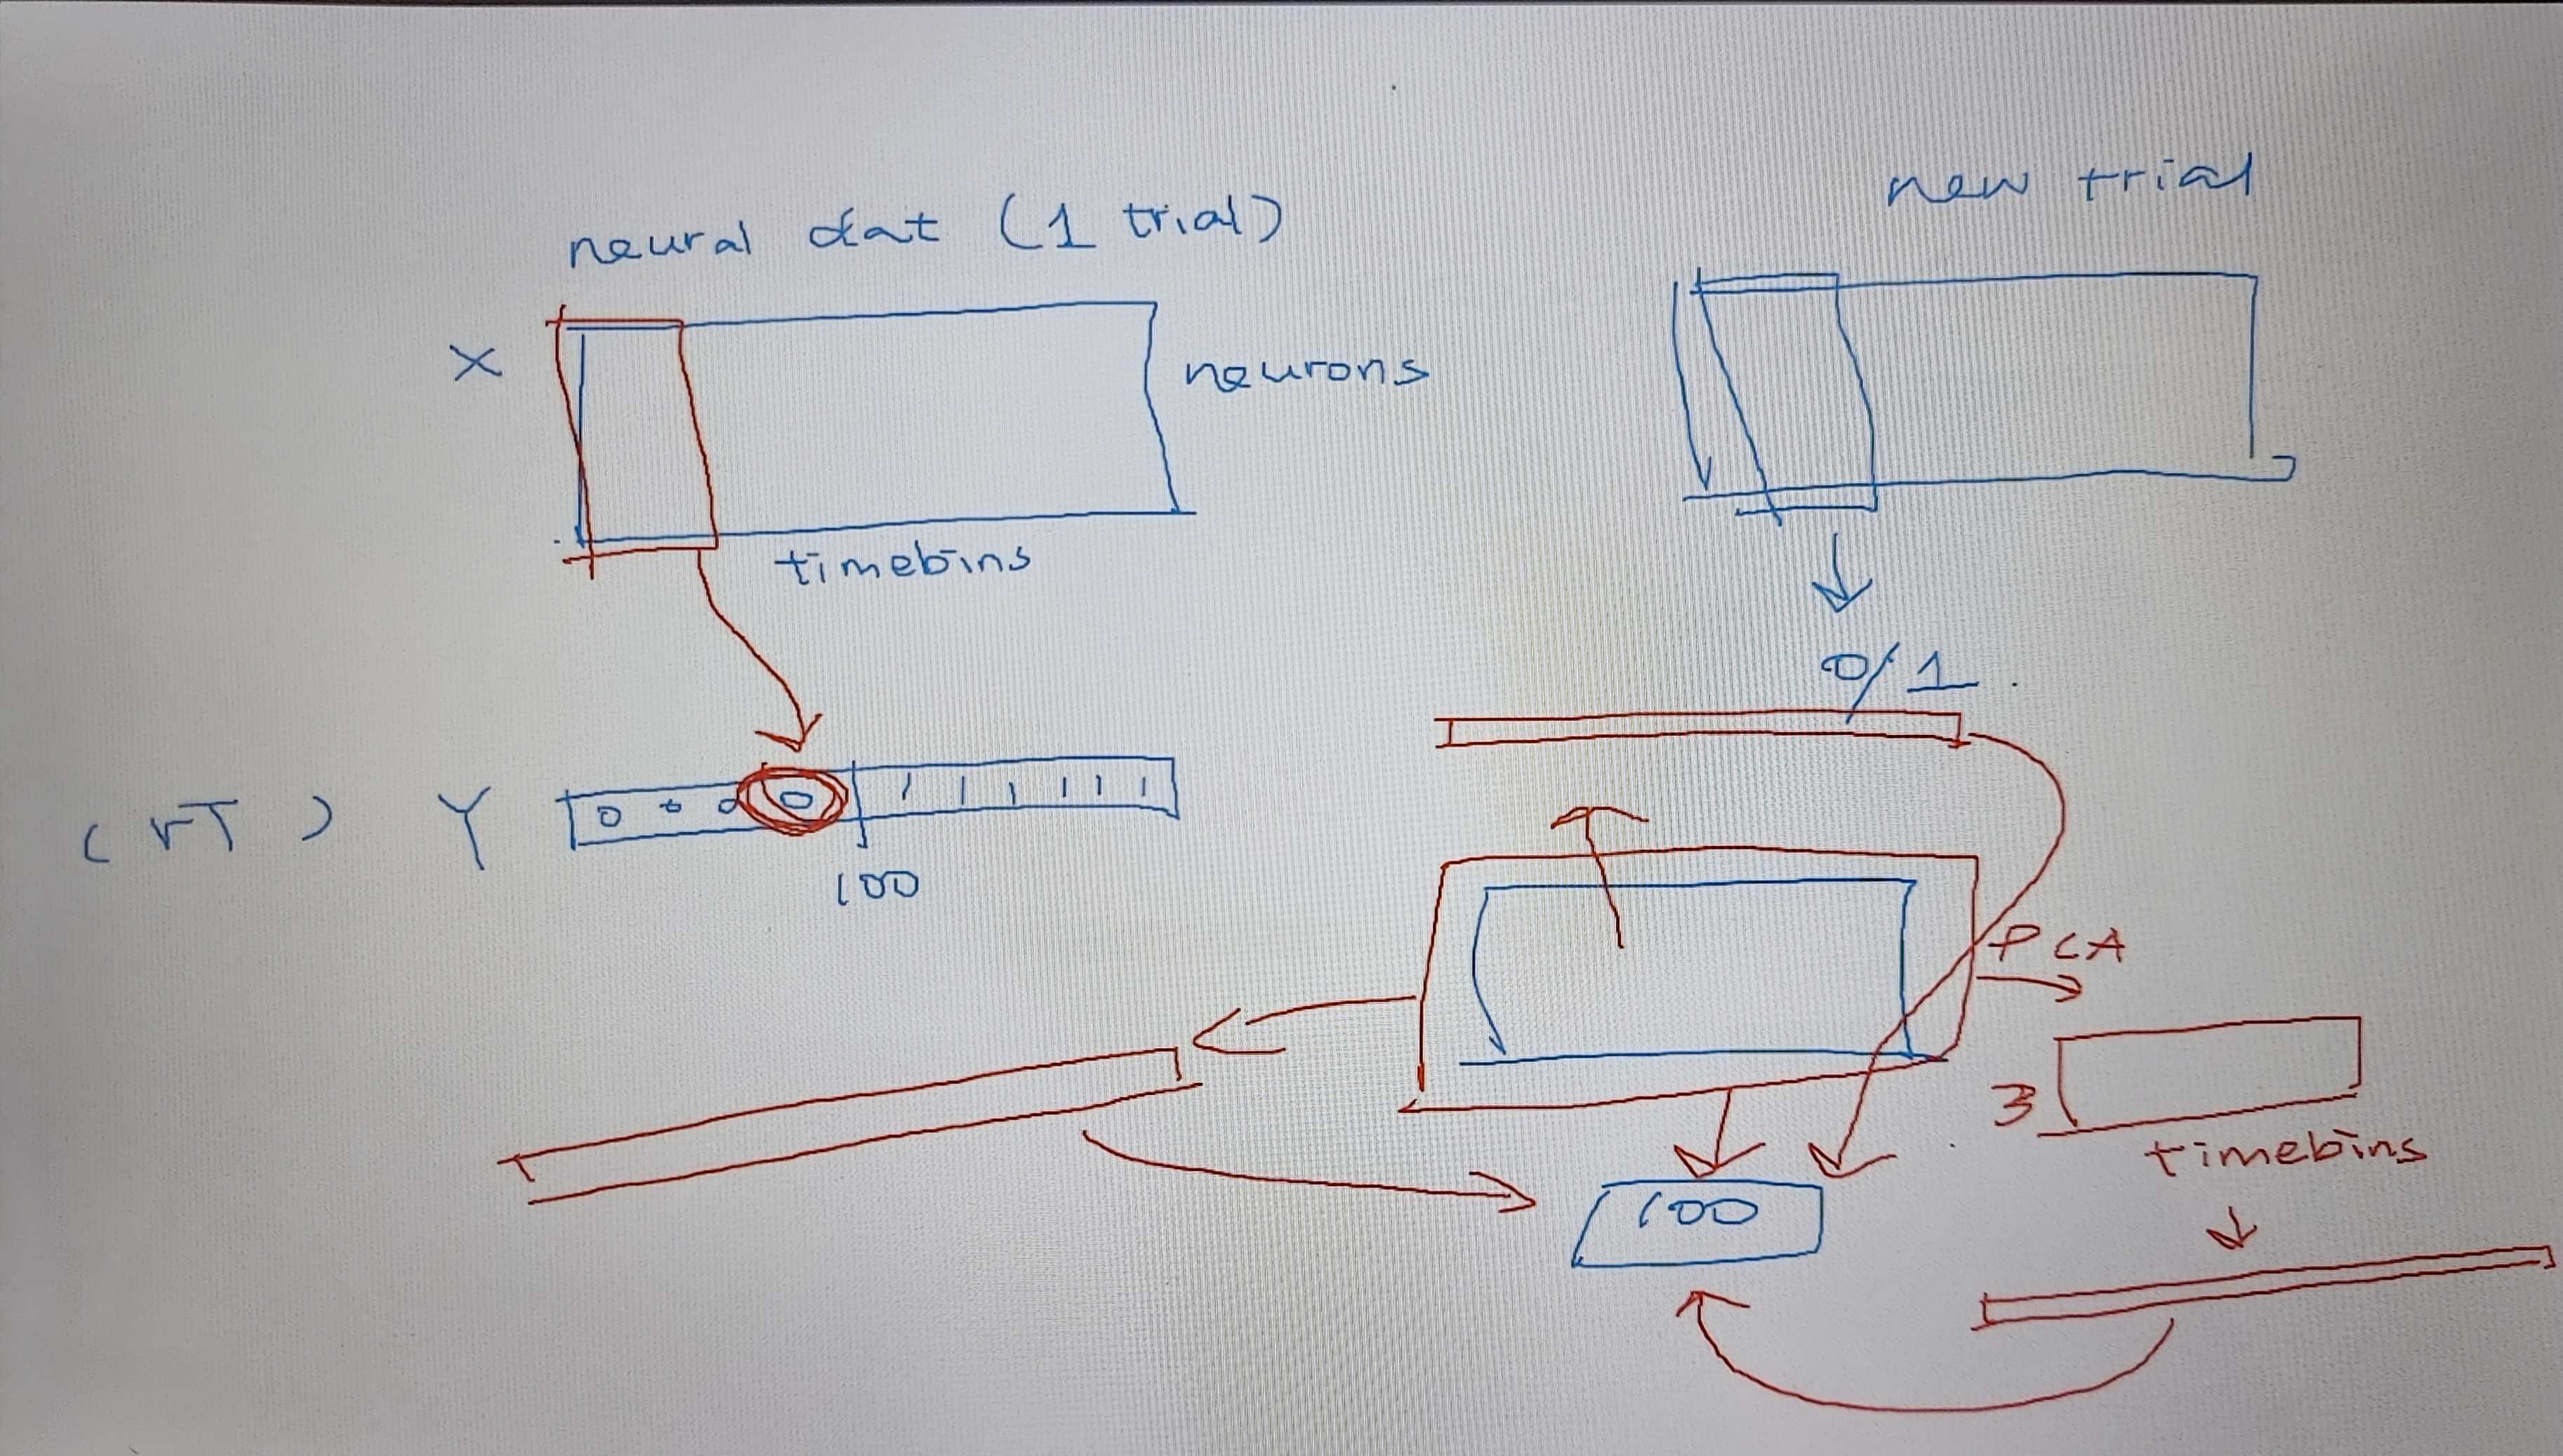 neural dat (1 trial)
new trial
X
neurons
timebins
0/1
(rT) Y
0 0 0 0 1 1 1 1 1 1
100
PCA
3
timebins
100